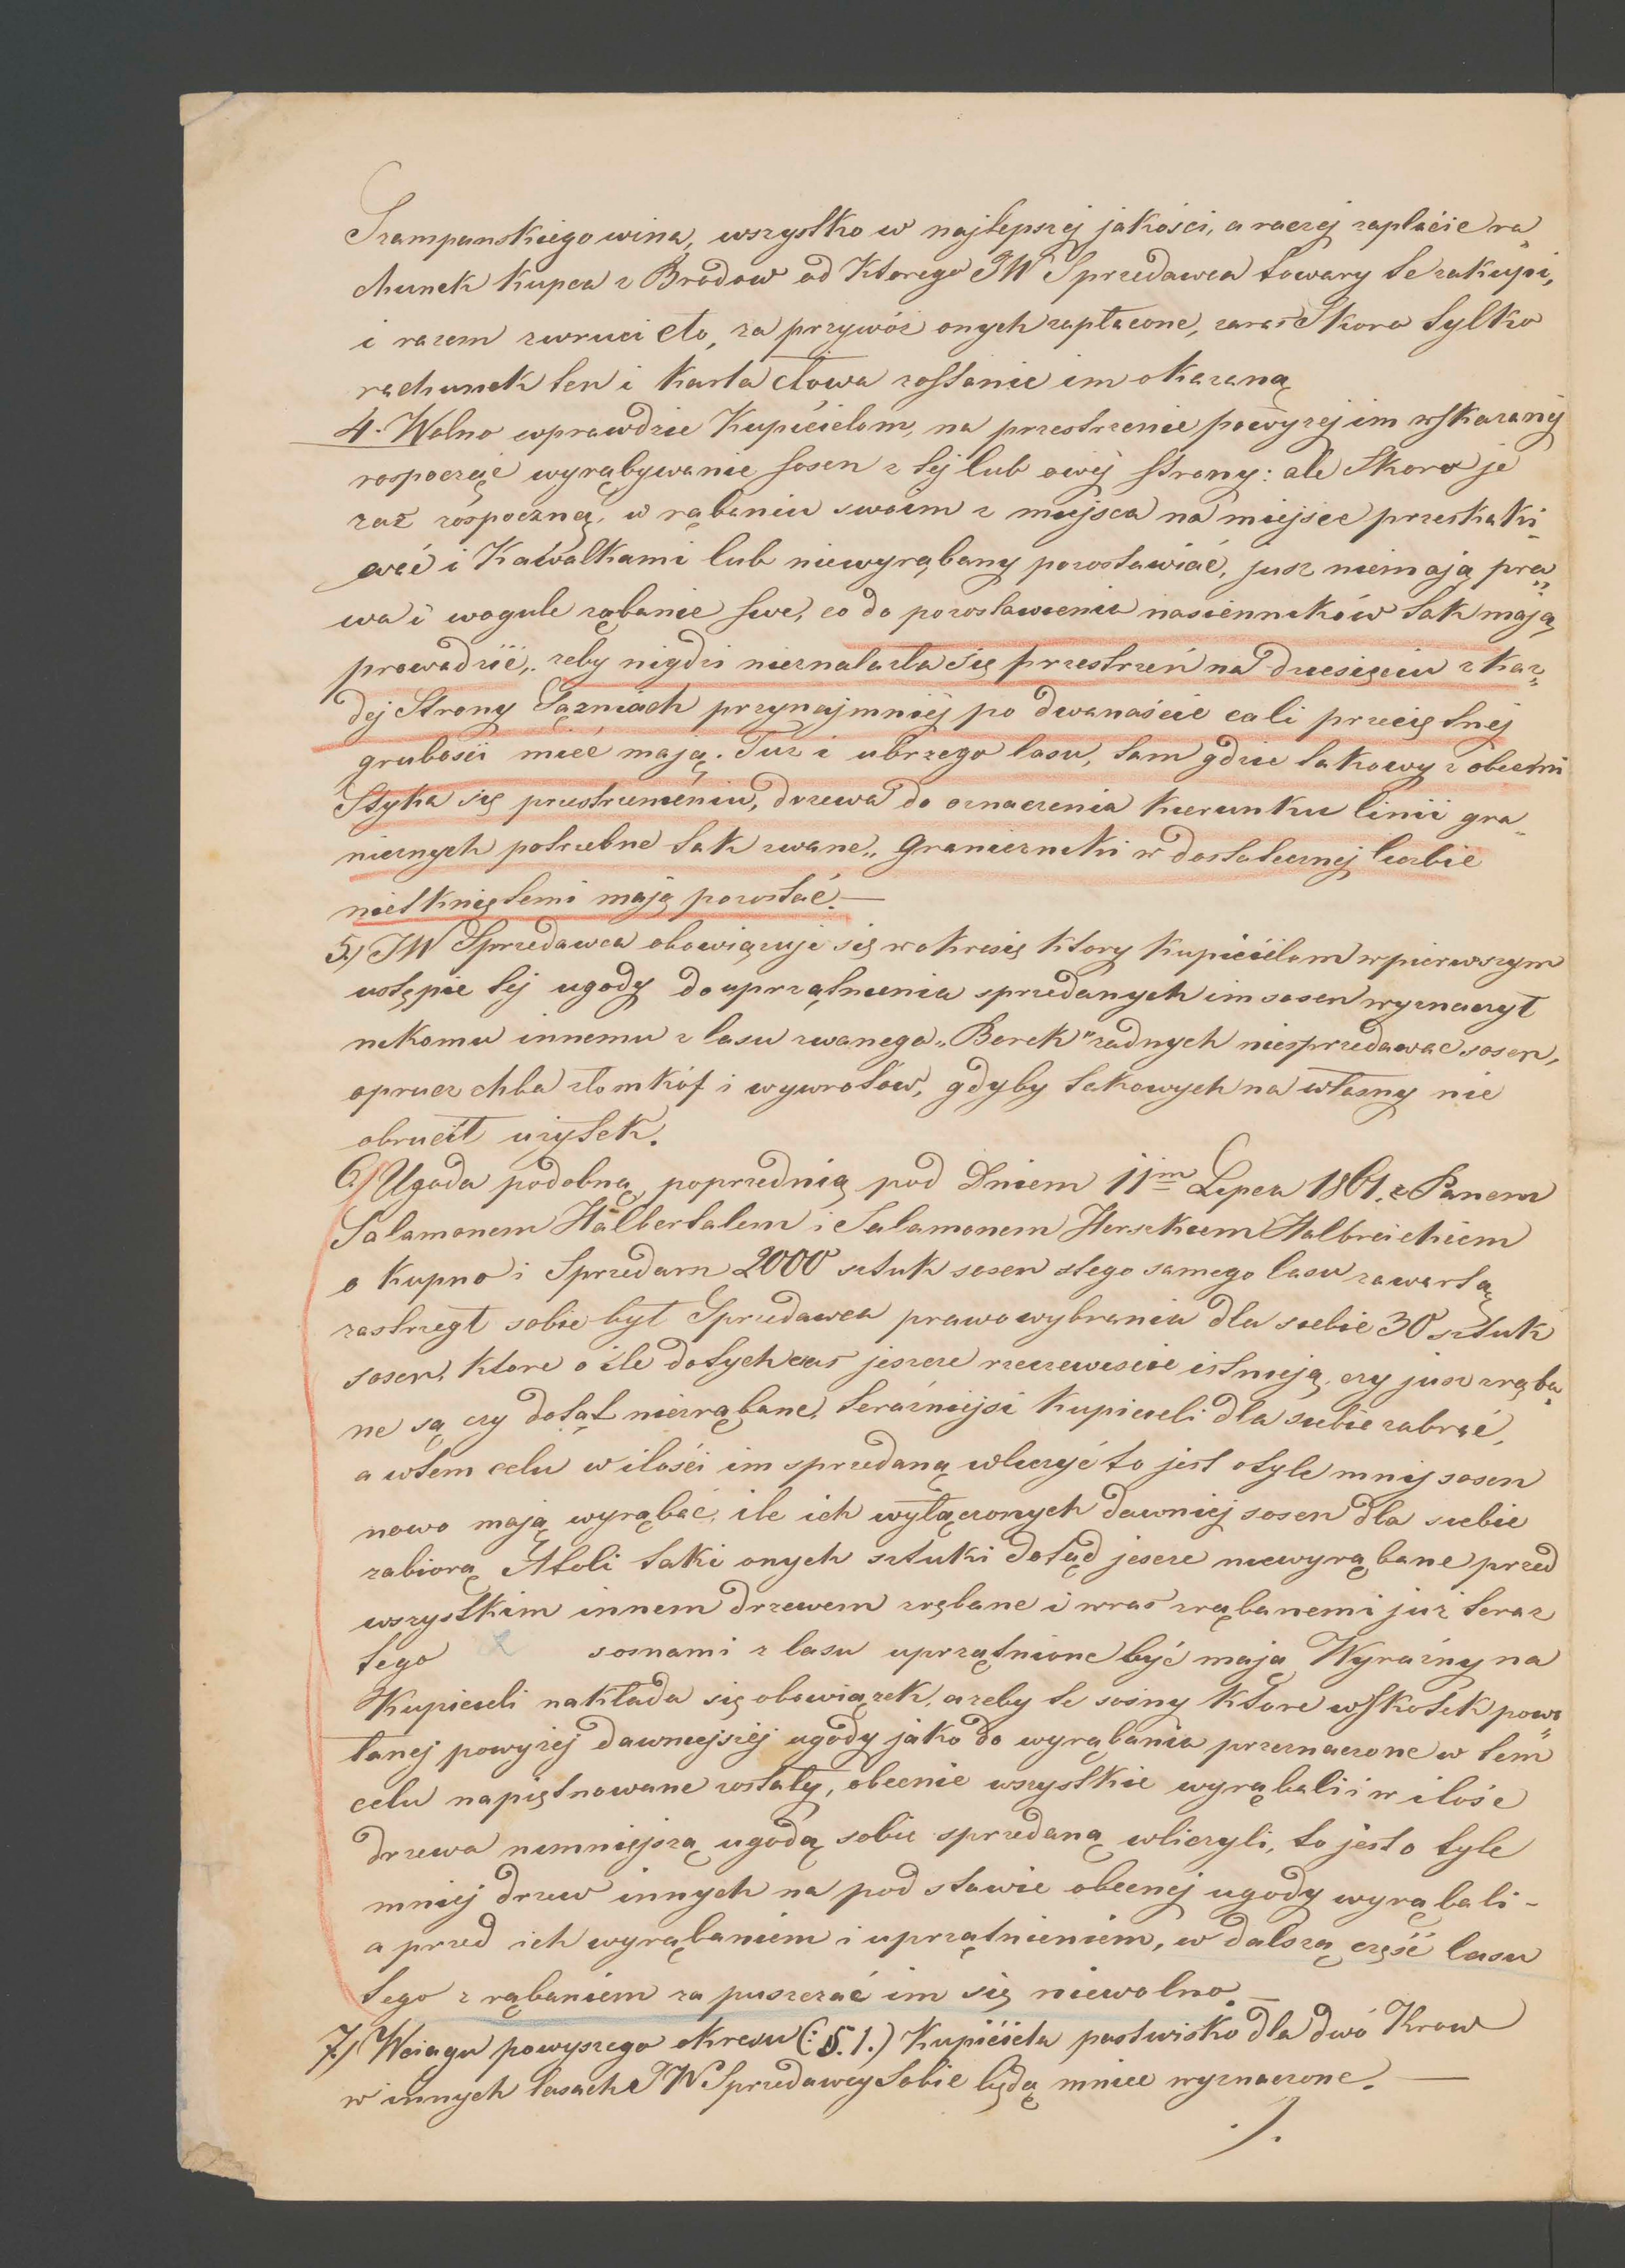 Szampanskiego wina, wszystko w najlepszej jakości, a raczej zapłacic ra„
chunek kupca z Brodow od ktorego JW Sprzedawca towary te zakupi,
i razem zwruci cło, za przywóz onych zapłacone, zaras skoro tylko
rachunek ten i karta cłowa zostanie im okazaną
4. Wolno wprawdzie Kupicielom, na przestrzenie powyzej im wskazanej
rospocząc wyrąbywanie sosen z tej lub owej strony: ale skoro je
raz rospoczną, w rąbaniu swoim z miejsca na miejsce przeskaki„
wać i Kawalkami lub niewyrąbany pozostawiać, jusz niemają pra„
wa i wogule rąbanie swe, co do pozostawienia nasienników tak mają
prowadzić, zeby nigdzi nieznalazła się przestrzeń na dziesięciu z kaz„
dej Strony Sązniach przynajmniej po dwanaście cali przecięlnej
grubości mieć mają. Tuz i ubrzego lasu, tam gdzie takowy z obcemi
Styka się przestrzeniéniu, drzewa do oznaczenia kierunku linii gra„
nicznych potrzebne tak zwane „Graniczniki w dostatecznej liczbie
nietkniętemi mają pozostać.—
5.) JW Sprzedawca obowiązuje się w okresię ktory Kupicielom w pierwszym
ustępie tej ugody do uprzątnienia sprzedanych im sosen wyznaczył
nikomu innemu z lasu zwanego „Berek" zadnych niesprzedawac sosen,
oprucz chba złomkóf i wywrotów, gdyby takowych na własny nie
obrucił uzytek.
6.) Ugoda podobną poprzednią pod Dniem 11im Lipca 1861. z Panem
Salamonem Halbertalem i Salamonem Herszkiem Halbreichiem
o kupno i Sprzedarz 2000 sztuk sosen stego samego lasu zawartą
zastrzegł sobie był Sprzedawca prawo wybrania dla siebie 30 sztuk
sosen, ktore o ile dotychczas jeszcze rzeczewiscie istnieją, czy jusz zrąba„
ne są czy dotąt niezrąbane, teraźniejsi Kupicieli dla siebie zabrać,
a wtem celu w ilości im sprzedaną wliczyć to jest otyle mnij sosen
nowo mają wyrąbać, ile ich wyłączonych dawniej sosen dla siebie
zabiorą Atoli taki onych sztuki dotąd jescze niewyrąbane przed
wszystkim innem drzewem zrębane i wras zrąbanemi juz teraz
tego z sosnami z lasu uprzątnione być mają Wyraźny na
Kupicieli nakłada się obowiązek, azeby te sosny ktore wskótek powo„
łanej powyzej dawniejszej ugody jako do wyrąbania przeznaczone w tem
celu napiętnowane zostały, obecnie wszystkie wyrąbali i w ilośc
drzewa niniejszą ugodą sobie sprzedaną wliczyli, to jest o tyle
mniej drzew innych na podstawie obecnej ugody wyrąbali -
a przed ich wyrąbaniem i uprzątnieniem, w dalszą część lasu
tego z rąbaniem zapuszczać im się niewolno.—
7.) Wciagu powyszego okresu (: §. 1.) Kupiciela pastwisko dla dwó Krow
w innych lasach JW Sprzedawcy Sobie będą mniec wyznaczone.—
./.